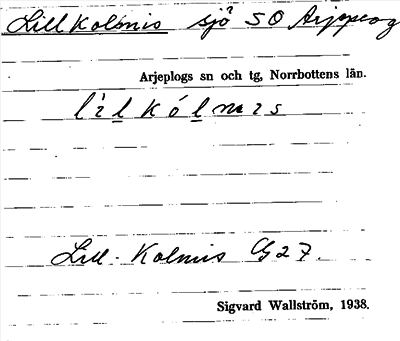 Lill Kolmis sjö SO Arjeplog
Arjeplogs sn och tg, Norrbottens län.
lìlkólmɪs
Lill-Kolmis G27.
Sigvard Wallström, 1938.